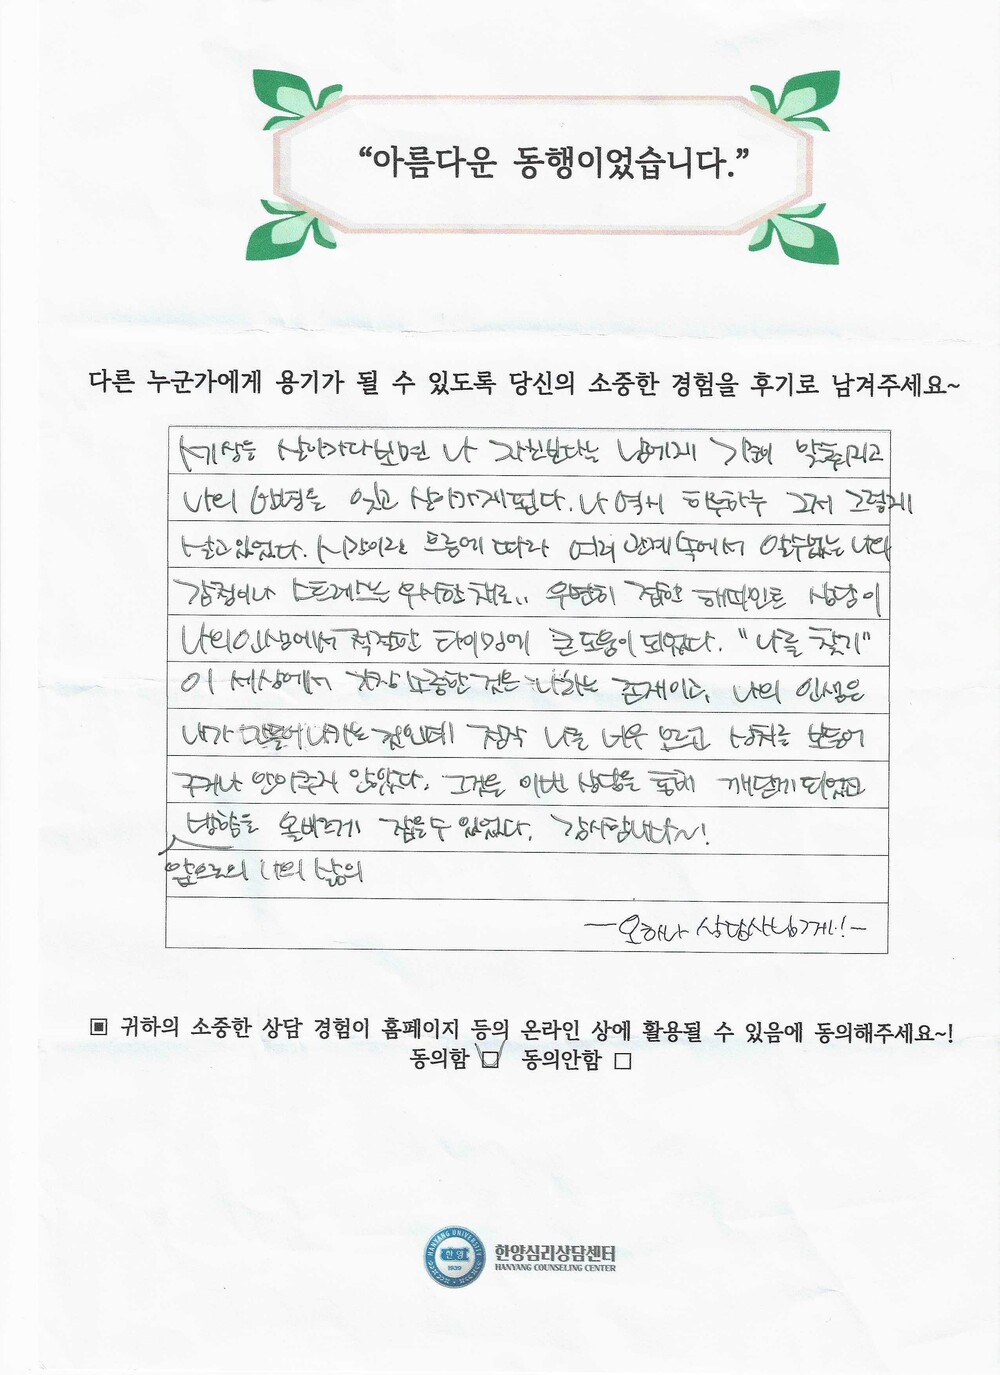 “아름다운 동행이었습니다.”
다른 누군가에게 용기가 될 수 있도록 당신의 소중한 경험을 후기로 남겨주세요~
세상을 살아가다보면 나 자신보다는 남에게 기준이 맞춰지고
나의 환경을 잊고 살아가게된다. 나 역시 하루하루 그저 그렇게
살고 있었다. 시간이란 흐름에 따라 여러 관계 속에서 알수없는 나의
감정이나 스트레스는 무시한 채로.. 우연히 접한 해피인트 상담이
나의 인생에서 적절한 타이밍에 큰 도움이 되었다. "나를 찾기"
이 세상에서 가장 소중한 것은 '나'라는 존재이고, 나의 인생은
내가 만들어 나가는 것인데 정작 나를 너무 모르고 상처를 보듬어
주거나 안아주지 않았다. 그것을 이번 상담을 통해 깨닫게 되었고
방향을 올바르게 잡을 수 있었다. 감사합니다~!
앞으로의 나의 삶의
- 오하나 상담사님께! -
▣ 귀하의 소중한 상담 경험이 홈페이지 등의 온라인 상에 활용될 수 있음에 동의해주세요~!
동의함 ☑ 동의안함 □
HANYANG UNIVERSITY
한양
1939
한양심리상담센터
HANYANG COUNSELING CENTER